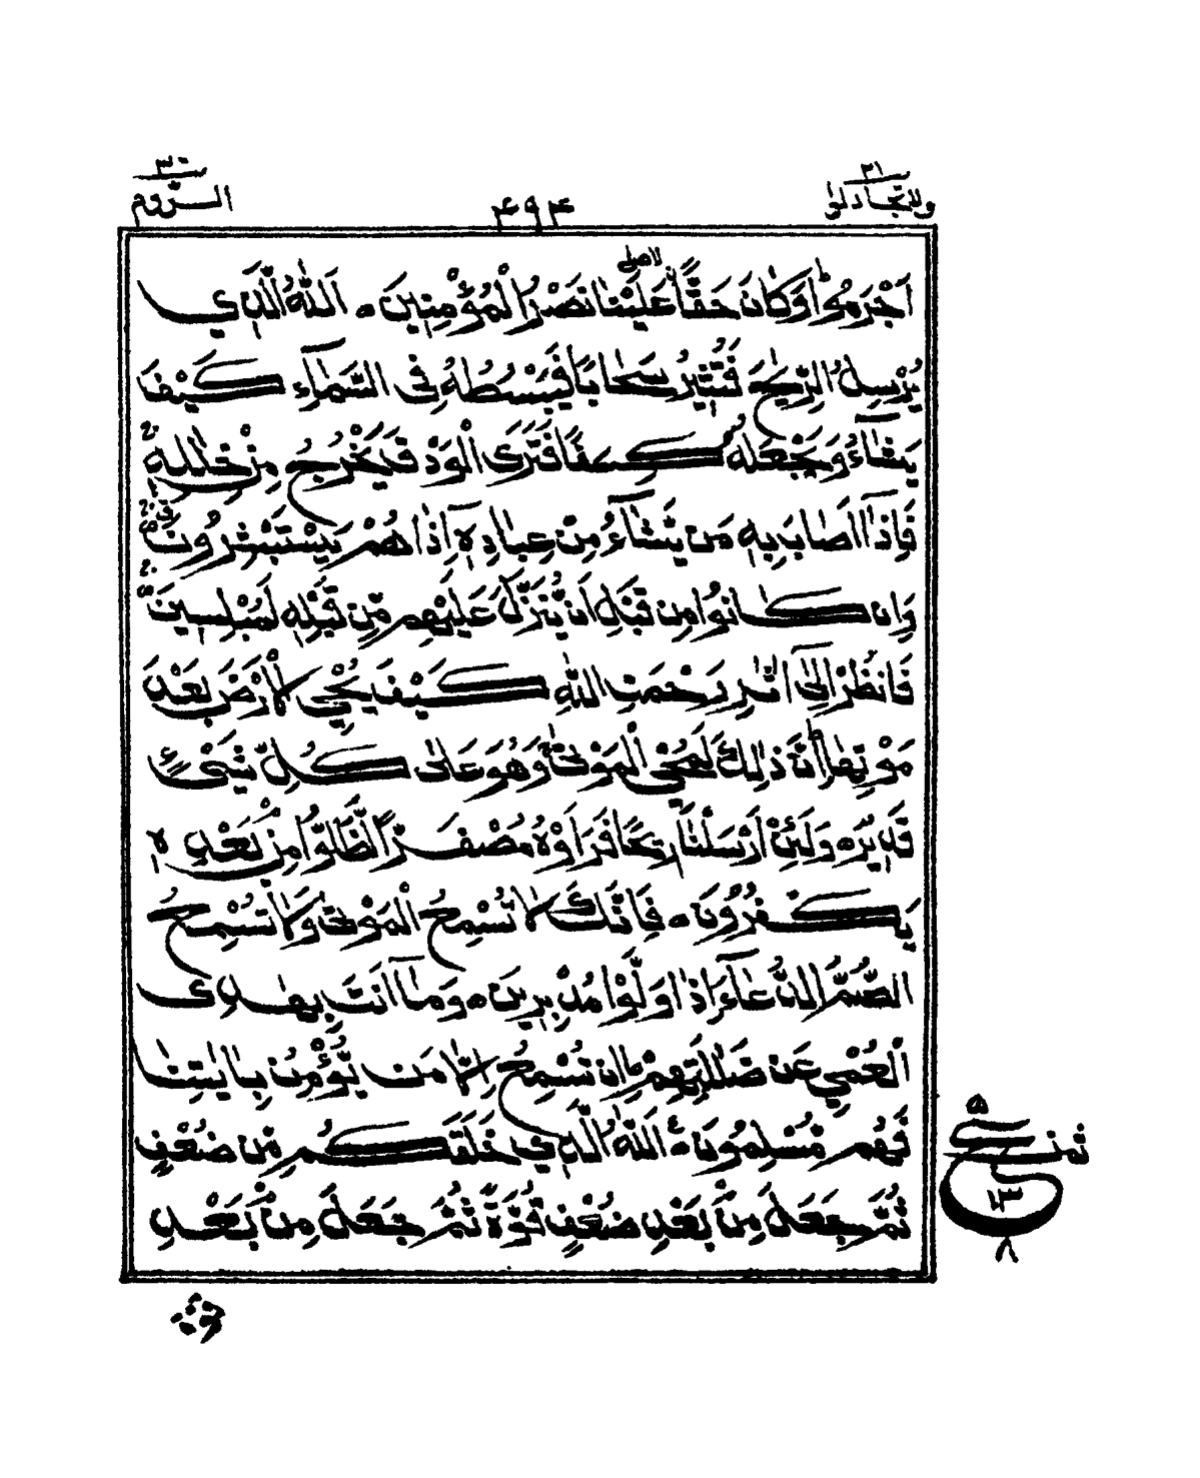 ولا تجادلوا ٢١
٤٩٤
الروم ٣٠
اَجْرَمُوْاؕ وَ كَانَ حَقًّا عَلَیْنَا نَصْرُ الْمُؤْمِنِیْنَ ۰ اَللّٰهُ الَّذِیْ
یُرْسِلُ الرِّیٰحَ فَتُثِیْرُ سَحَابًا فَیَبْسُطُهٗ فِی السَّمَآءِ كَیْفَ
یَشَآءُ وَ یَجْعَلُهٗ كِسَفًا فَتَرَى الْوَدْقَ یَخْرُجُ مِنْ خِلٰلِهٖ
فَاِذَاۤ اَصَابَ بِهٖ مَنْ یَّشَآءُ مِنْ عِبَادِهٖۤ اِذَا هُمْ یَسْتَبْشِرُوْنَ
وَ اِنْ كَانُوْا مِنْ قَبْلِ اَنْ یُّنَزَّلَ عَلَیْهِمْ مِّنْ قَبْلِهٖ لَمُبْلِسِیْنَ
فَانْظُرْ اِلٰۤى اٰثٰرِ رَحْمَتِ اللّٰهِ كَیْفَ یُحْیِ الْاَرْضَ بَعْدَ
مَوْتِهَاؕ اِنَّ ذٰلِكَ لَمُحْیِ الْمَوْتٰىۚ وَ هُوَ عَلٰى كُلِّ شَیْءٍ
قَدِیْرٌ ۰ وَ لَىِٕنْ اَرْسَلْنَا رِیْحًا فَرَاَوْهُ مُصْفَرًّا لَّظَلُّوْا مِنْۢ بَعْدِهٖ
یَكْفُرُوْنَ ۰ فَاِنَّكَ لَا تُسْمِعُ الْمَوْتٰى وَ لَا تُسْمِعُ
الصُّمَّ الدُّعَآءَ اِذَا وَلَّوْا مُدْبِرِیْنَ ۰ وَ مَاۤ اَنْتَ بِهٰدِ
الْعُمْیِ عَنْ ضَلٰلَتِهِمْؕ اِنْ تُسْمِعُ اِلَّا مَنْ یُّؤْمِنُ بِاٰیٰتِنَا
فَهُمْ مُّسْلِمُوْنَ ۠ اَللّٰهُ الَّذِیْ خَلَقَكُمْ مِّنْ ضُعْفٍ
ثُمَّ جَعَلَ مِنْۢ بَعْدِ ضُعْفٍ قُوَّةً ثُمَّ جَعَلَ مِنْۢ بَعْدِ
٥
ثمن
١٣
٨
قوة